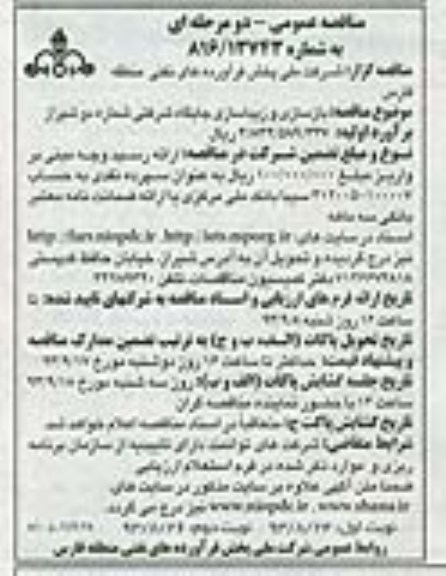 مناقصه عمومی - دو مرحله ای
به شماره ۸۱۶/۱۳۷۴۳
مناقصه گزار: شرکت ملی پخش فرآورده های نفتی منطقه
فارس
موضوع مناقصه: بازسازی و زیباسازی جایگاه شرکتی شماره دو شیراز
برآورد اولیه: ریال
نوع و مبلغ تضمین شرکت در مناقصه: ارائه رسید وجه مبنی بر
واریز مبلغ ۱۰۰/۰۰۰/۰۰۰ ریال به عنوان سپرده نقدی به حساب
سیبا بانک ملی مرکزی یا ارائه ضمانت نامه معتبر
بانکی سه ماهه
اسناد در سایت های http://iets.mporg.ir , http://fars.niopdc.ir
نیز درج گردیده و تحویل آن به آدرس شیراز، خیابان حافظ
دفتر کمیسیون مناقصات تلفن
تاریخ ارائه فرم های ارزیابی و اسناد مناقصه به شرکتهای تایید شده: تا
ساعت ۱۲ روز شنبه
تاریخ تحویل پاکات (الف، ب و ج) به ترتیب تضمین مدارک مناقصه
و پیشنهاد قیمت: حداکثر تا ساعت ۱۶ روز دوشنبه مورخ ۹۳/۹/۱۷
تاریخ جلسه گشایش پاکات (الف و ب): روز سه شنبه مورخ ۹۳/۹/۱۸
ساعت ۱۴ با حضور نماینده مناقصه گران
تاریخ گشایش پاکت ج: متعاقبا در اسناد مناقصه اعلام خواهد شد
شرایط متقاضی: شرکت های توانمند دارای تاییدیه از سازمان برنامه
ریزی و موارد ذکر شده در فرم استعلام ارزیابی
ضمنا متن آگهی علاوه بر سایت مذکور در سایت های
www.niopdc.ir , www.shana.ir نیز درج می گردد.
نوبت اول: ۹۳/۸/۲۳ نوبت دوم: ۹۳/۸/۲۴
روابط عمومی شرکت ملی پخش فرآورده های نفتی منطقه فارس